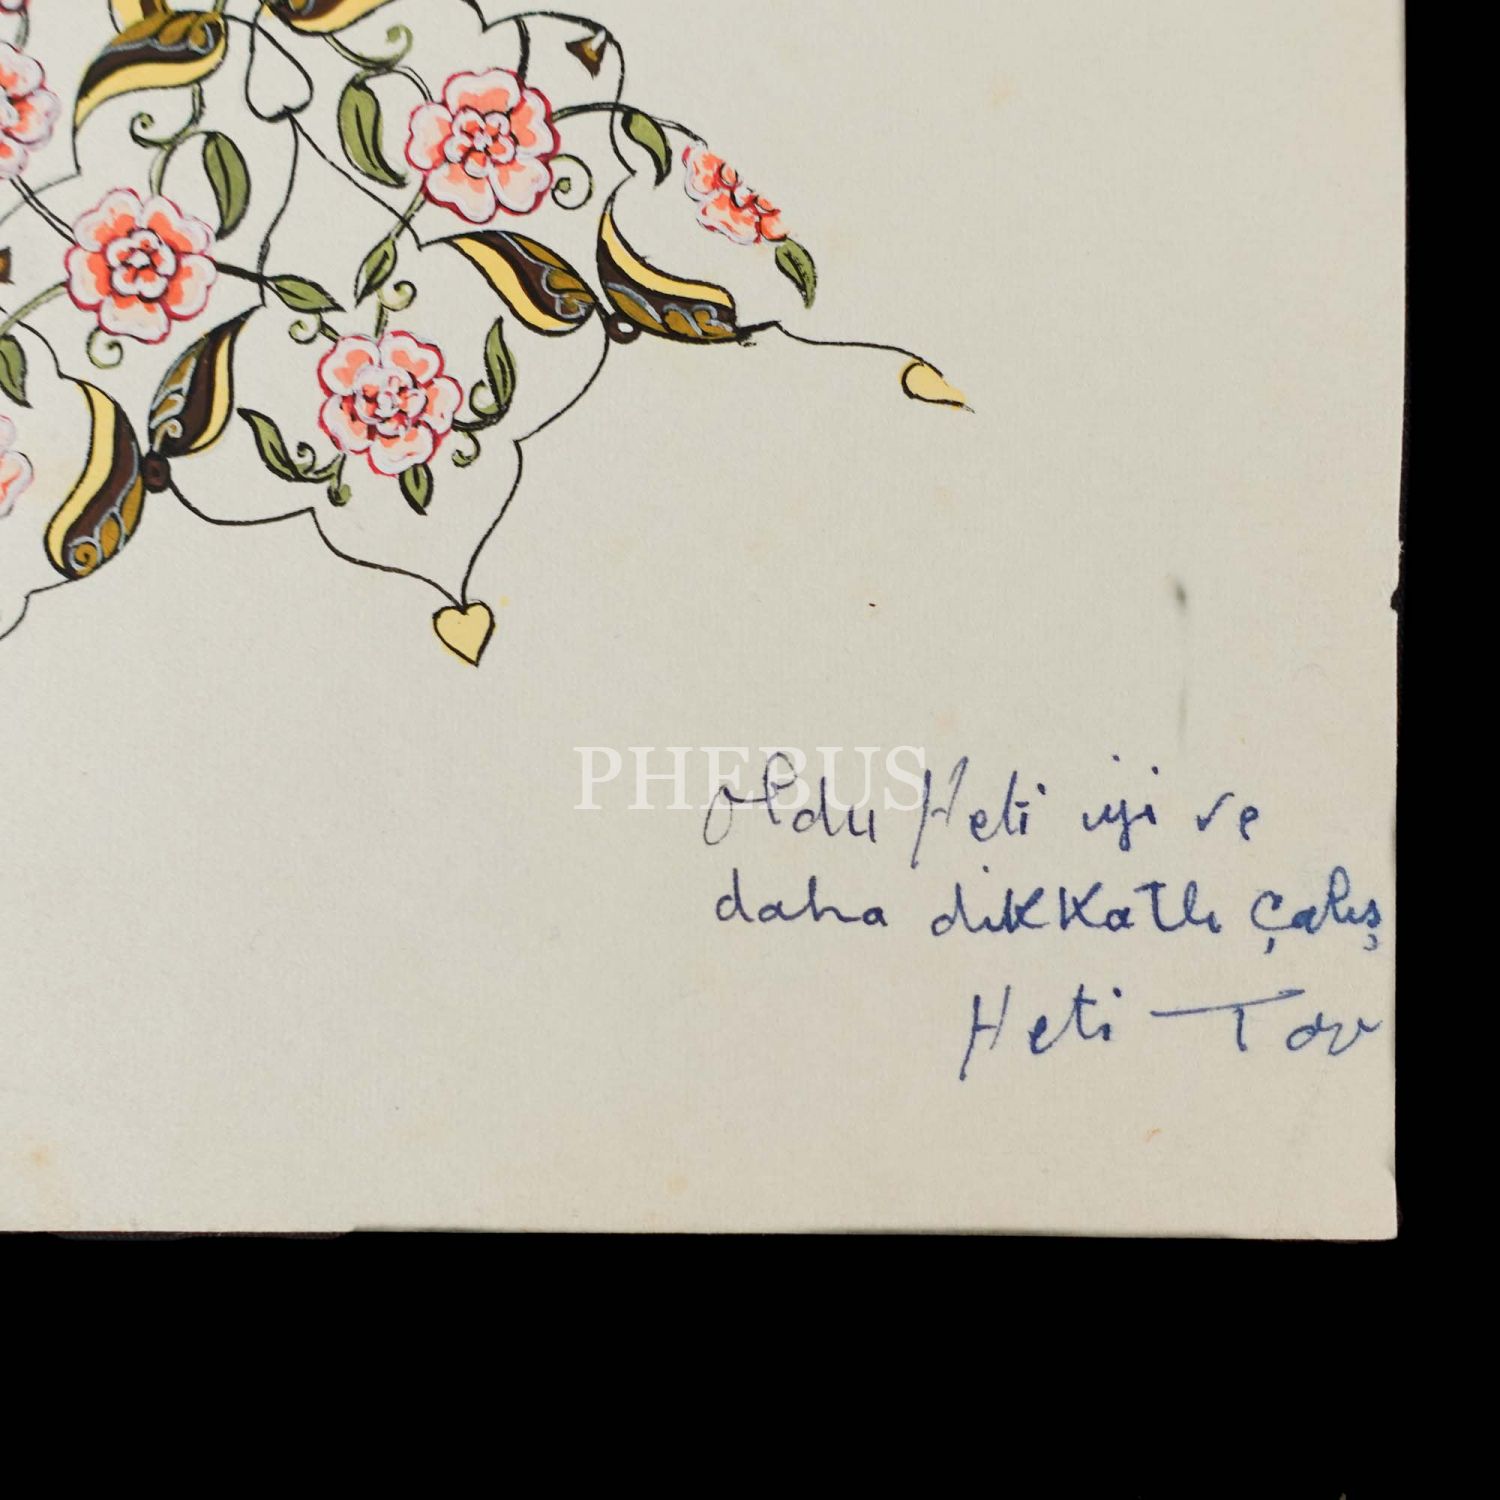 PHEBUS
Oldu Heti iyi ve
daha dikkatli çalış
Heti Tav